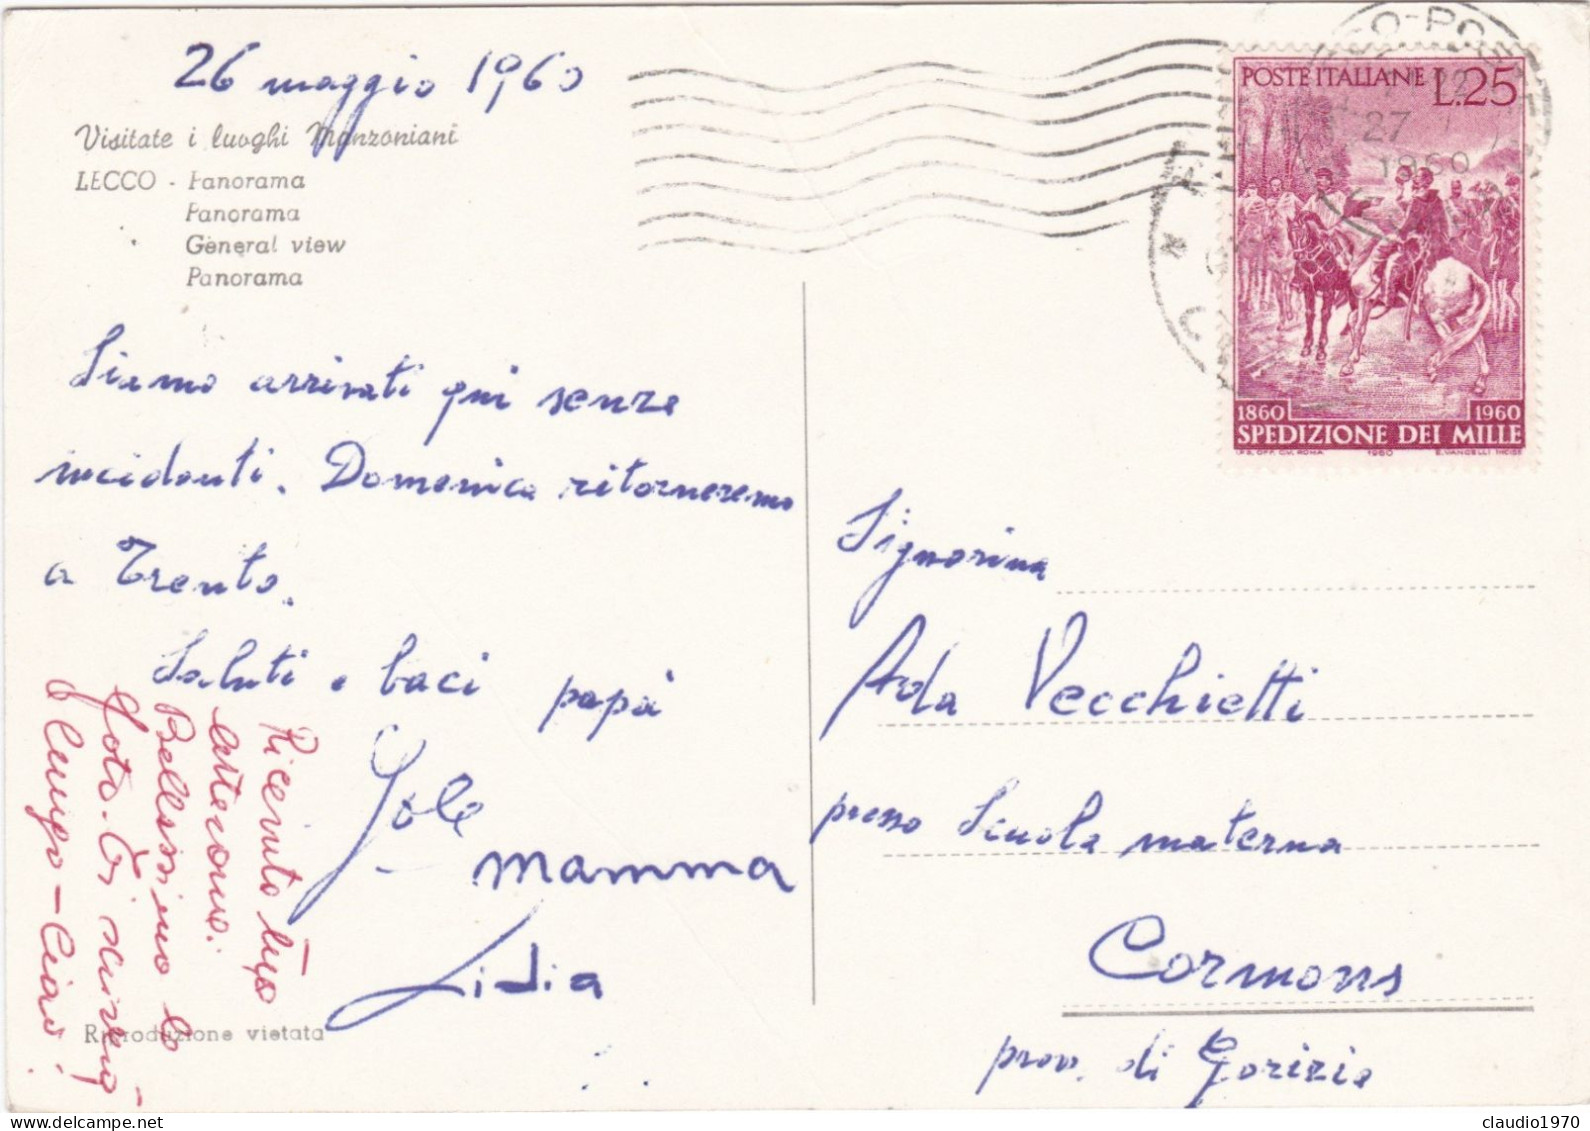 26 maggio 1960
Visitate i luoghi Manzoniani
LECCO - Panorama
Panorama
General view
Panorama
Siamo arrivati qui senza
incidenti. Domenica ritorneremo
a Trento.
Saluti e baci papà
Jole
mamma
Lidia
Ricevuto tuo
Bellissimo la
foto. Ti scriverò
a lungo - Ciao!
Riproduzione vietata
POSTE ITALIANE L.25
27
1960
1860 1960
SPEDIZIONE DEI MILLE
I.P.S. OFF. C.V. ROMA 1960 E. VANGELLI INCISE
Signorina
Ada Vecchietti
presso Scuola materna
Cormons
prov. di Gorizia
claudio1970